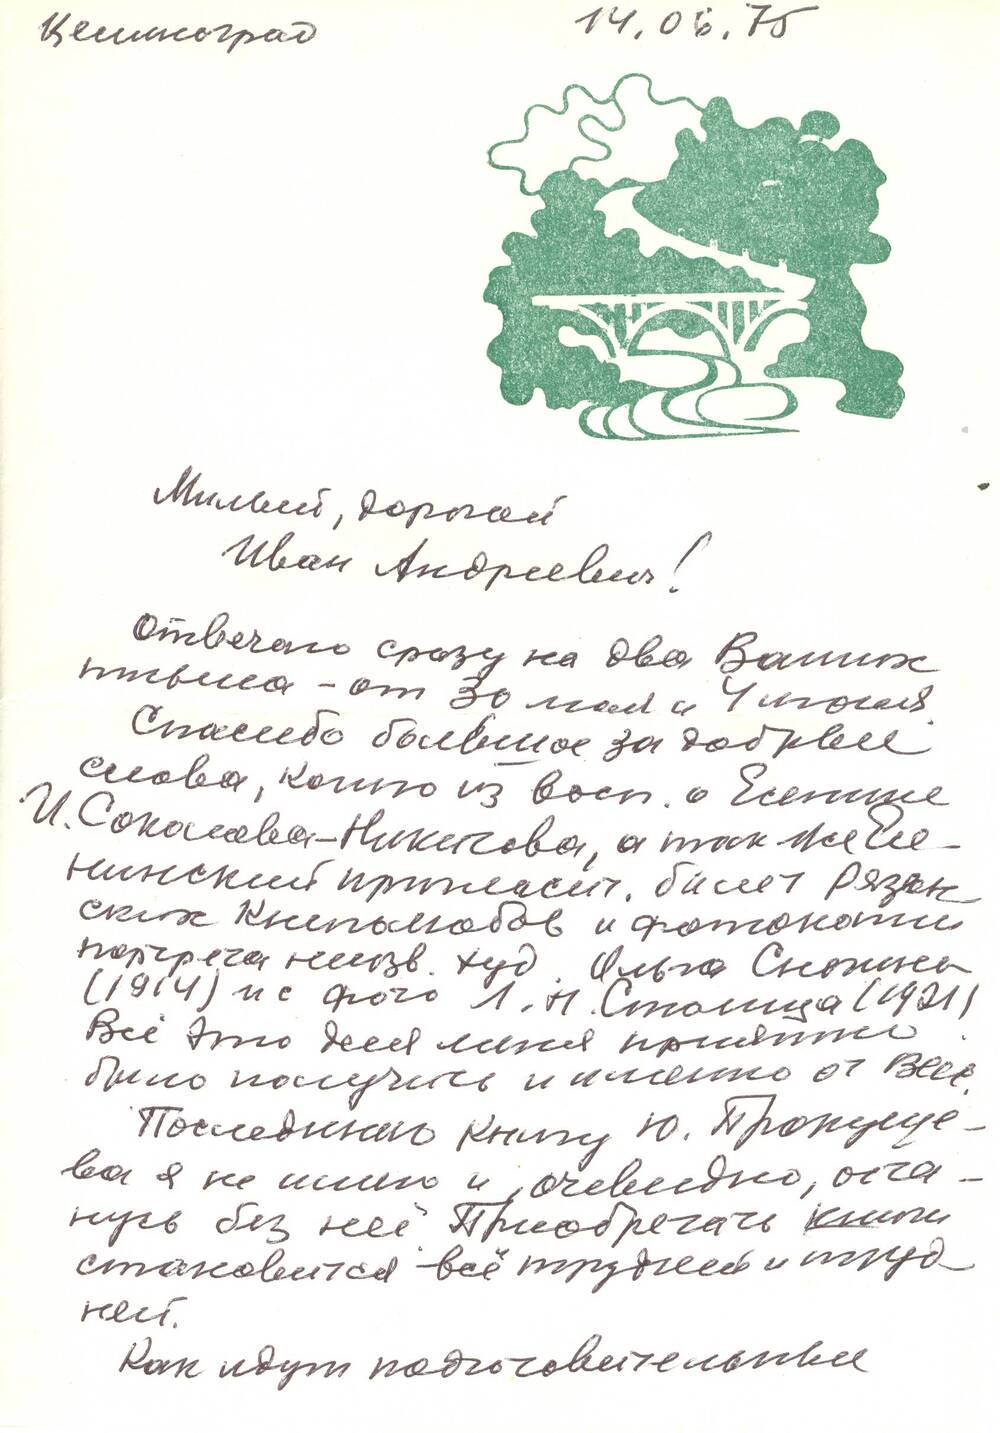 Целиноград 14.06.75
Милый, дорогой
Иван Андреевич!
Отвечаю сразу на два Ваших
письма – от 30 мая и 4 июня.
Спасибо большое за добрые
слова, копию из восп. о Есенине
И. Соколова-Никитова, а так же Есе-
нинский пригласит. билет Рязан
ских книголюбов и фотокопии
портрета неизв. худ. Ольга Снопкы
(1914) и с фото Л. Н. Столица (1921)
Всё это для меня приятно
было получить и именно от Вас.
Последнюю книгу Ю. Прокуше-
ва я не имею и, очевидно, оста-
нусь без неё. Приобретать книги
становится всё трудней и труд
ней.
Как идут подготовительные